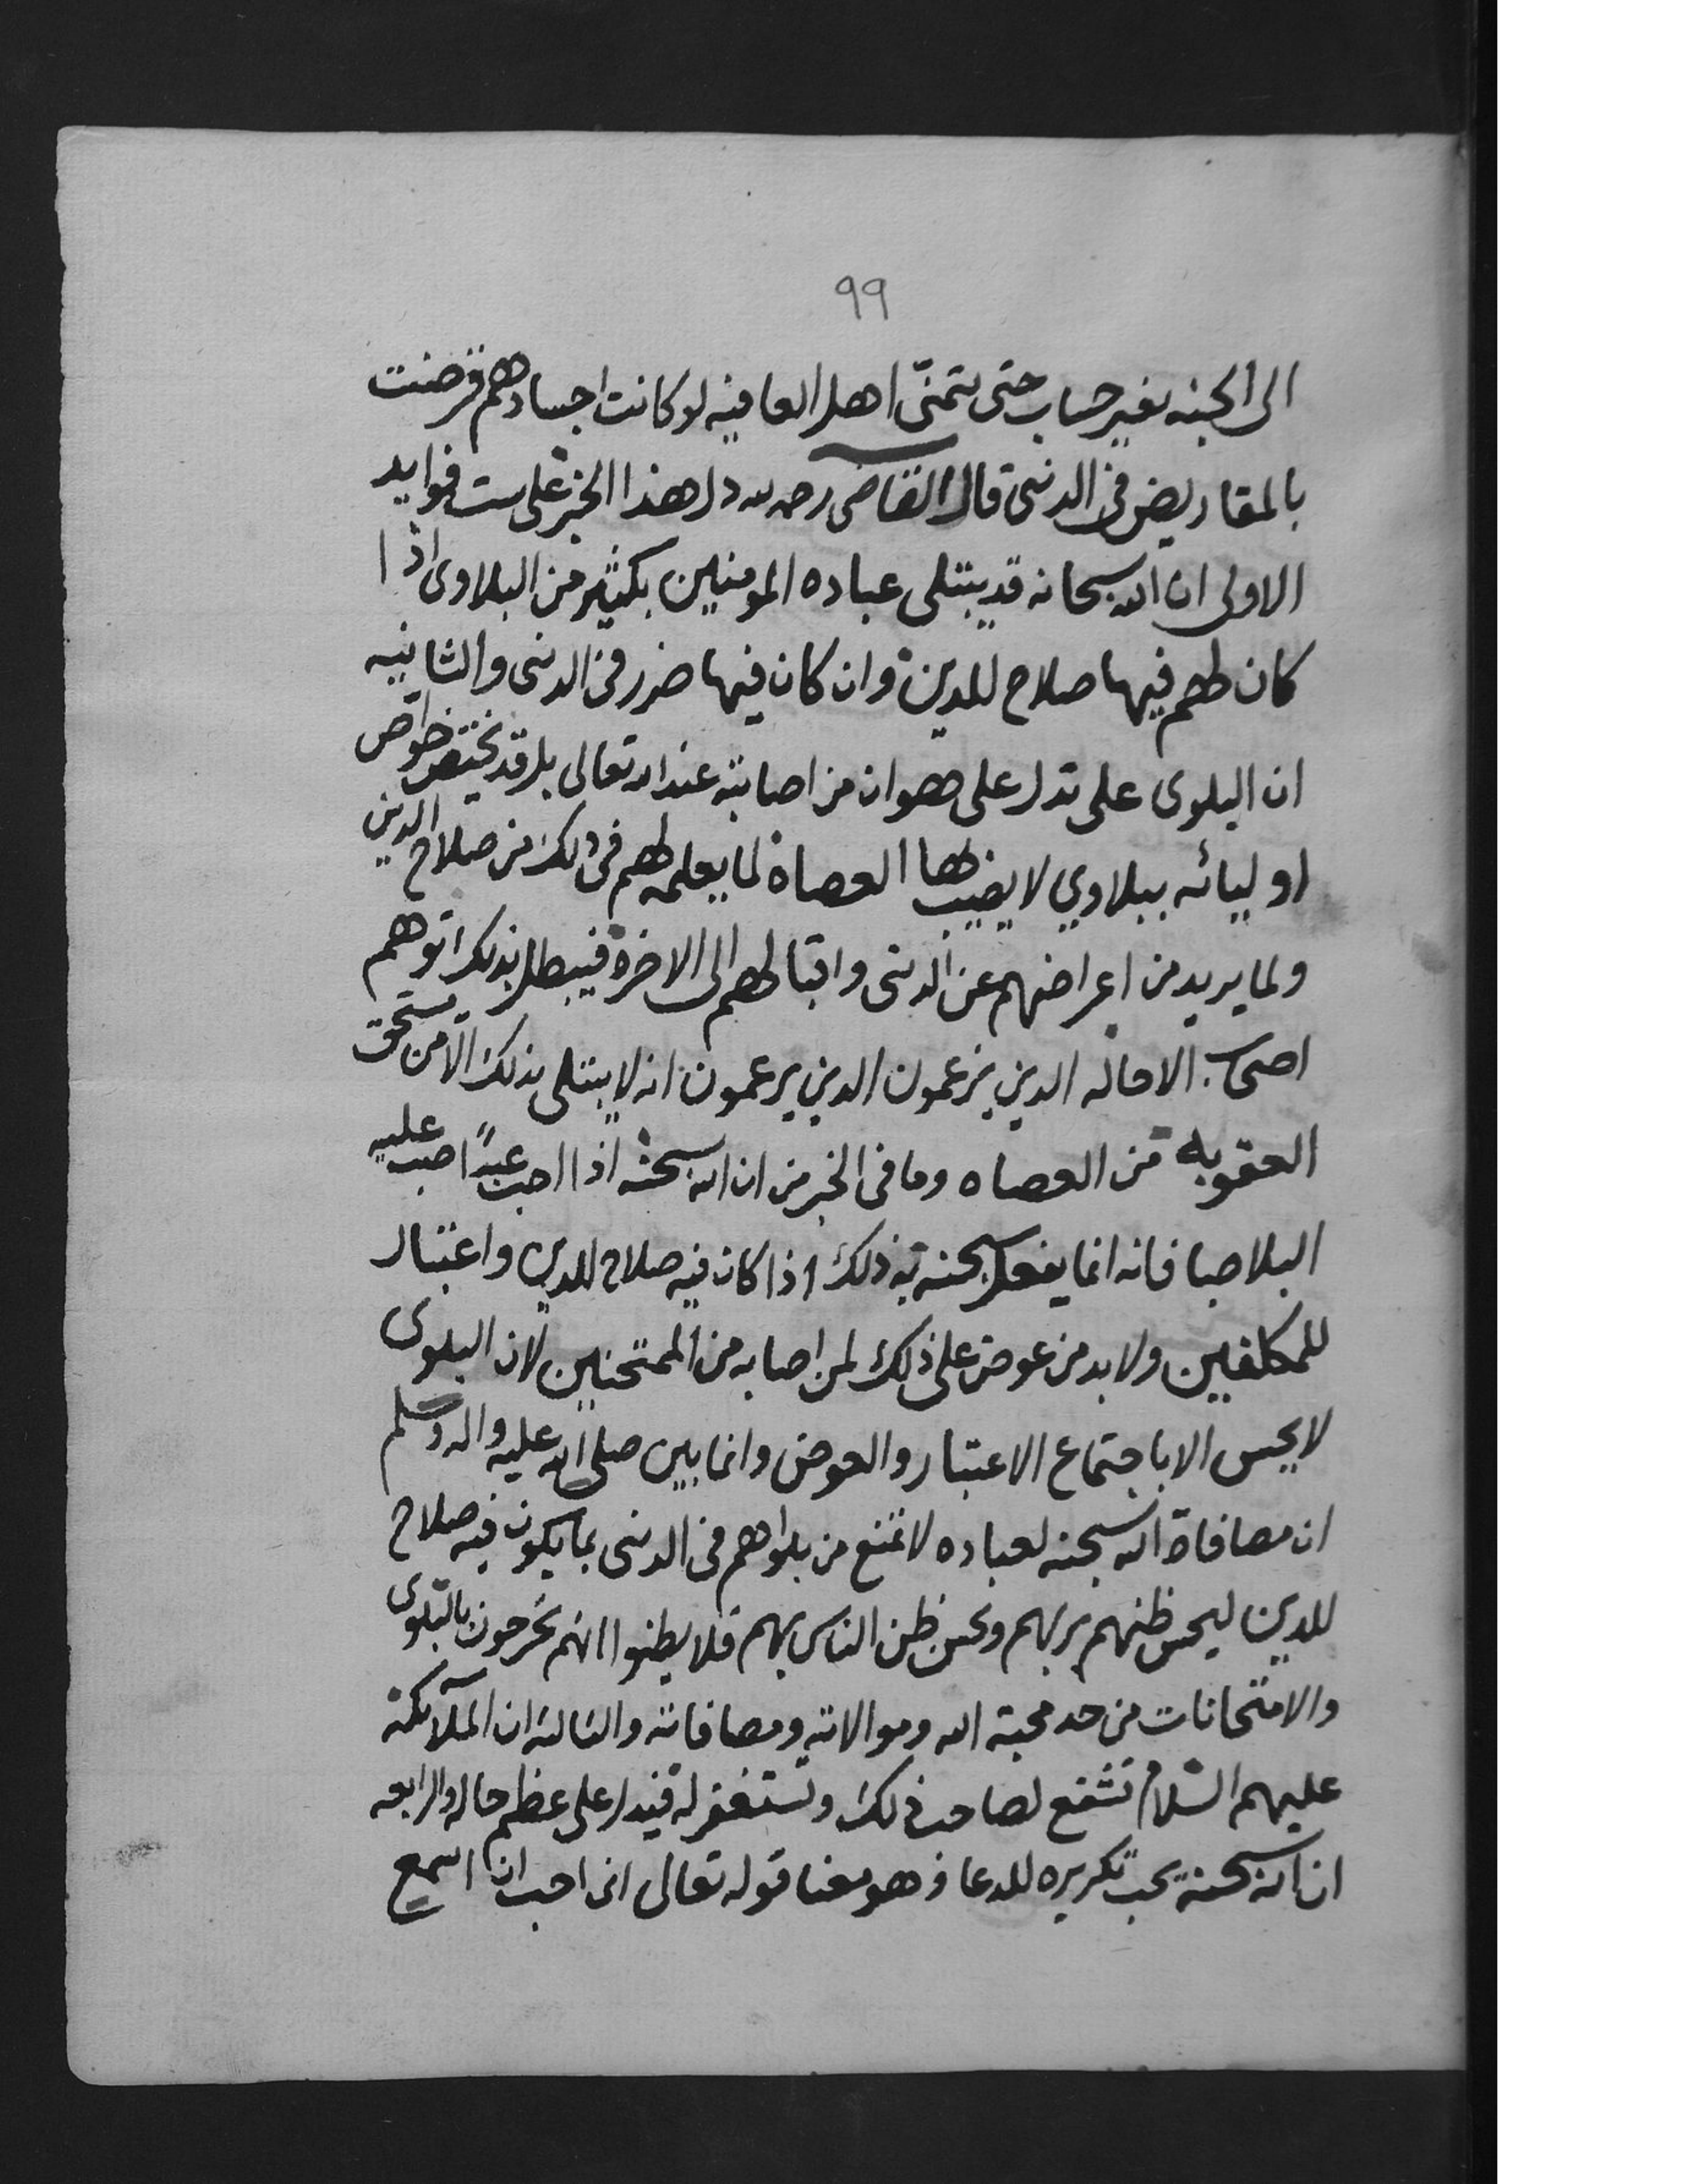 ٩٩
الى الجنه بغير حساب حتى يتمنّى اهل العافيه لو كانت اجسادهم قرضت
بالمقاريض في الدنى قال القاضى رحمه الله دل هذا الخبر على ست فوايد
الاولى ان الله سبحانه قد يبتلى عباده المومنين بكثير من البلاوى اذا
كان لهم فيها صلاح للدين وان كان فيها ضرر في الدنى والثانيه
ان البلوى على تدل على هوان من اصابته عند الله تعالى بل قد يختص خواص
اوليائه ببلاوي لا يصيب بها العصاة لما يعلمه لهم فى ذلك من صلاح الدين
ولما يريد من اعراضهم عن الدنى واقبالهم الى الاخرة فيبطل بذلك اتوهم
اصحاب الاحاله الدين يزعمون الدين يزعمون انه لا يبتلى بذلك الا من يستحق
العقوبه من العصاه وما فى الخبر من ان الله سبحنه اذا احب عبدًا صب عليه
البلا صبا فانه انما يفعل سبحنه به ذلك اذا كان فيه صلاح للدين واعتبار
للمكلفين ولا بد من عوض على ذلك لمن اصابه من الممتحنين لان البلوى
لا يحسن الا باجتماع الاعتبار والعوض وانما بين صلى الله عليه واله وسلم
ان مصافاة الله سبحنه لعباده لا تمنع من بلواهم فى الدنى بما يكون فيه صلاح
للدين ليحسن ظنهم بربهم ويحسن ظن الناس بهم فلا يظنوا انهم يخرجون بالبلوى
والامتحانات من حد محبة الله وموالاته ومصافاته والثالثه ان الملآئكة
عليهم السّلام تشفع لصاحب ذلك وتستغفر له فيدل على عظم حاله والرابعه
ان الله سبحنه يحب تكريره للدعا وهو معنا قوله تعالى انى احب ان اسمع